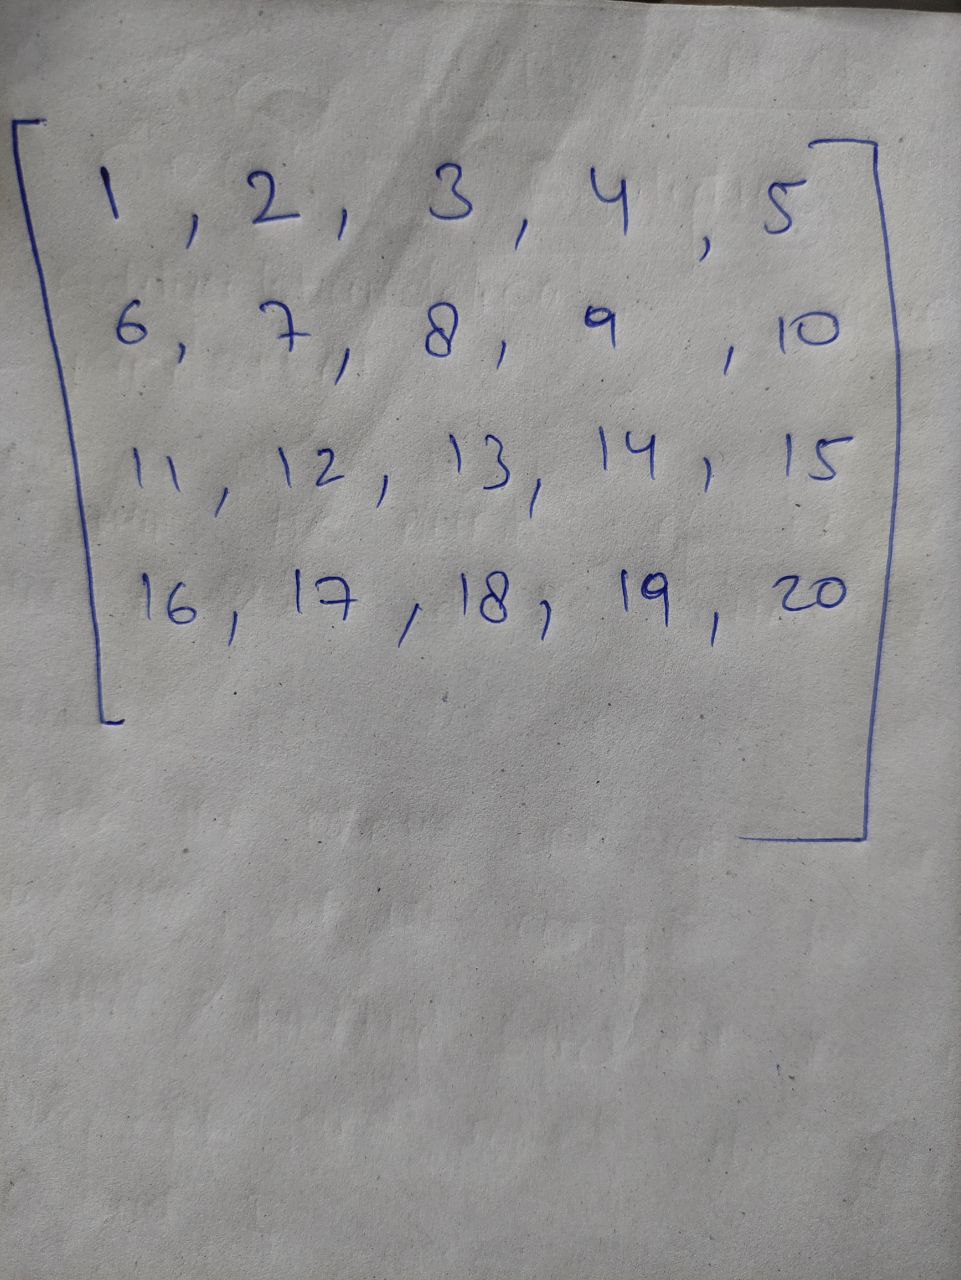 [1, 2, 3, 4, 5
6, 7, 8, 9, 10
11, 12, 13, 14, 15
16, 17, 18, 19, 20]